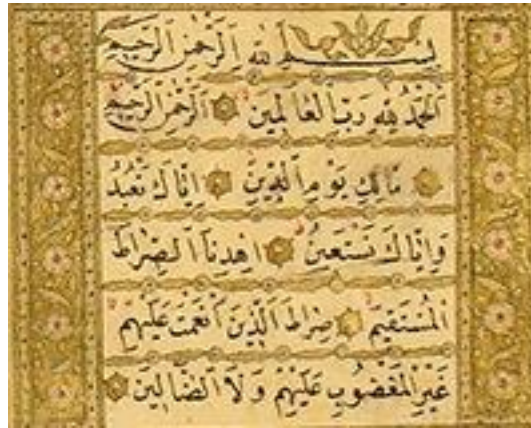 بِسْمِ اللهِ الرَّحْمٰنِ الرَّحِيمِ
اَلْحَمْدُ لِلهِ رَبِّ الْعَالَمِينَ ۝ اَلرَّحْمٰنِ الرَّحِيمِ
۝ مَالِكِ يَوْمِ الدِّينِ ۝ اِيَّاكَ نَعْبُدُ
وَاِيَّاكَ نَسْتَعِينُ ۝ اِهْدِنَا الصِّرَاطَ
الْمُسْتَقِيمَ ۝ صِرَاطَ الَّذِينَ اَنْعَمْتَ عَلَيْهِمْ
غَيْرِ الْمَغْضُوبِ عَلَيْهِمْ وَلَا الضَّالِّينَ ۝